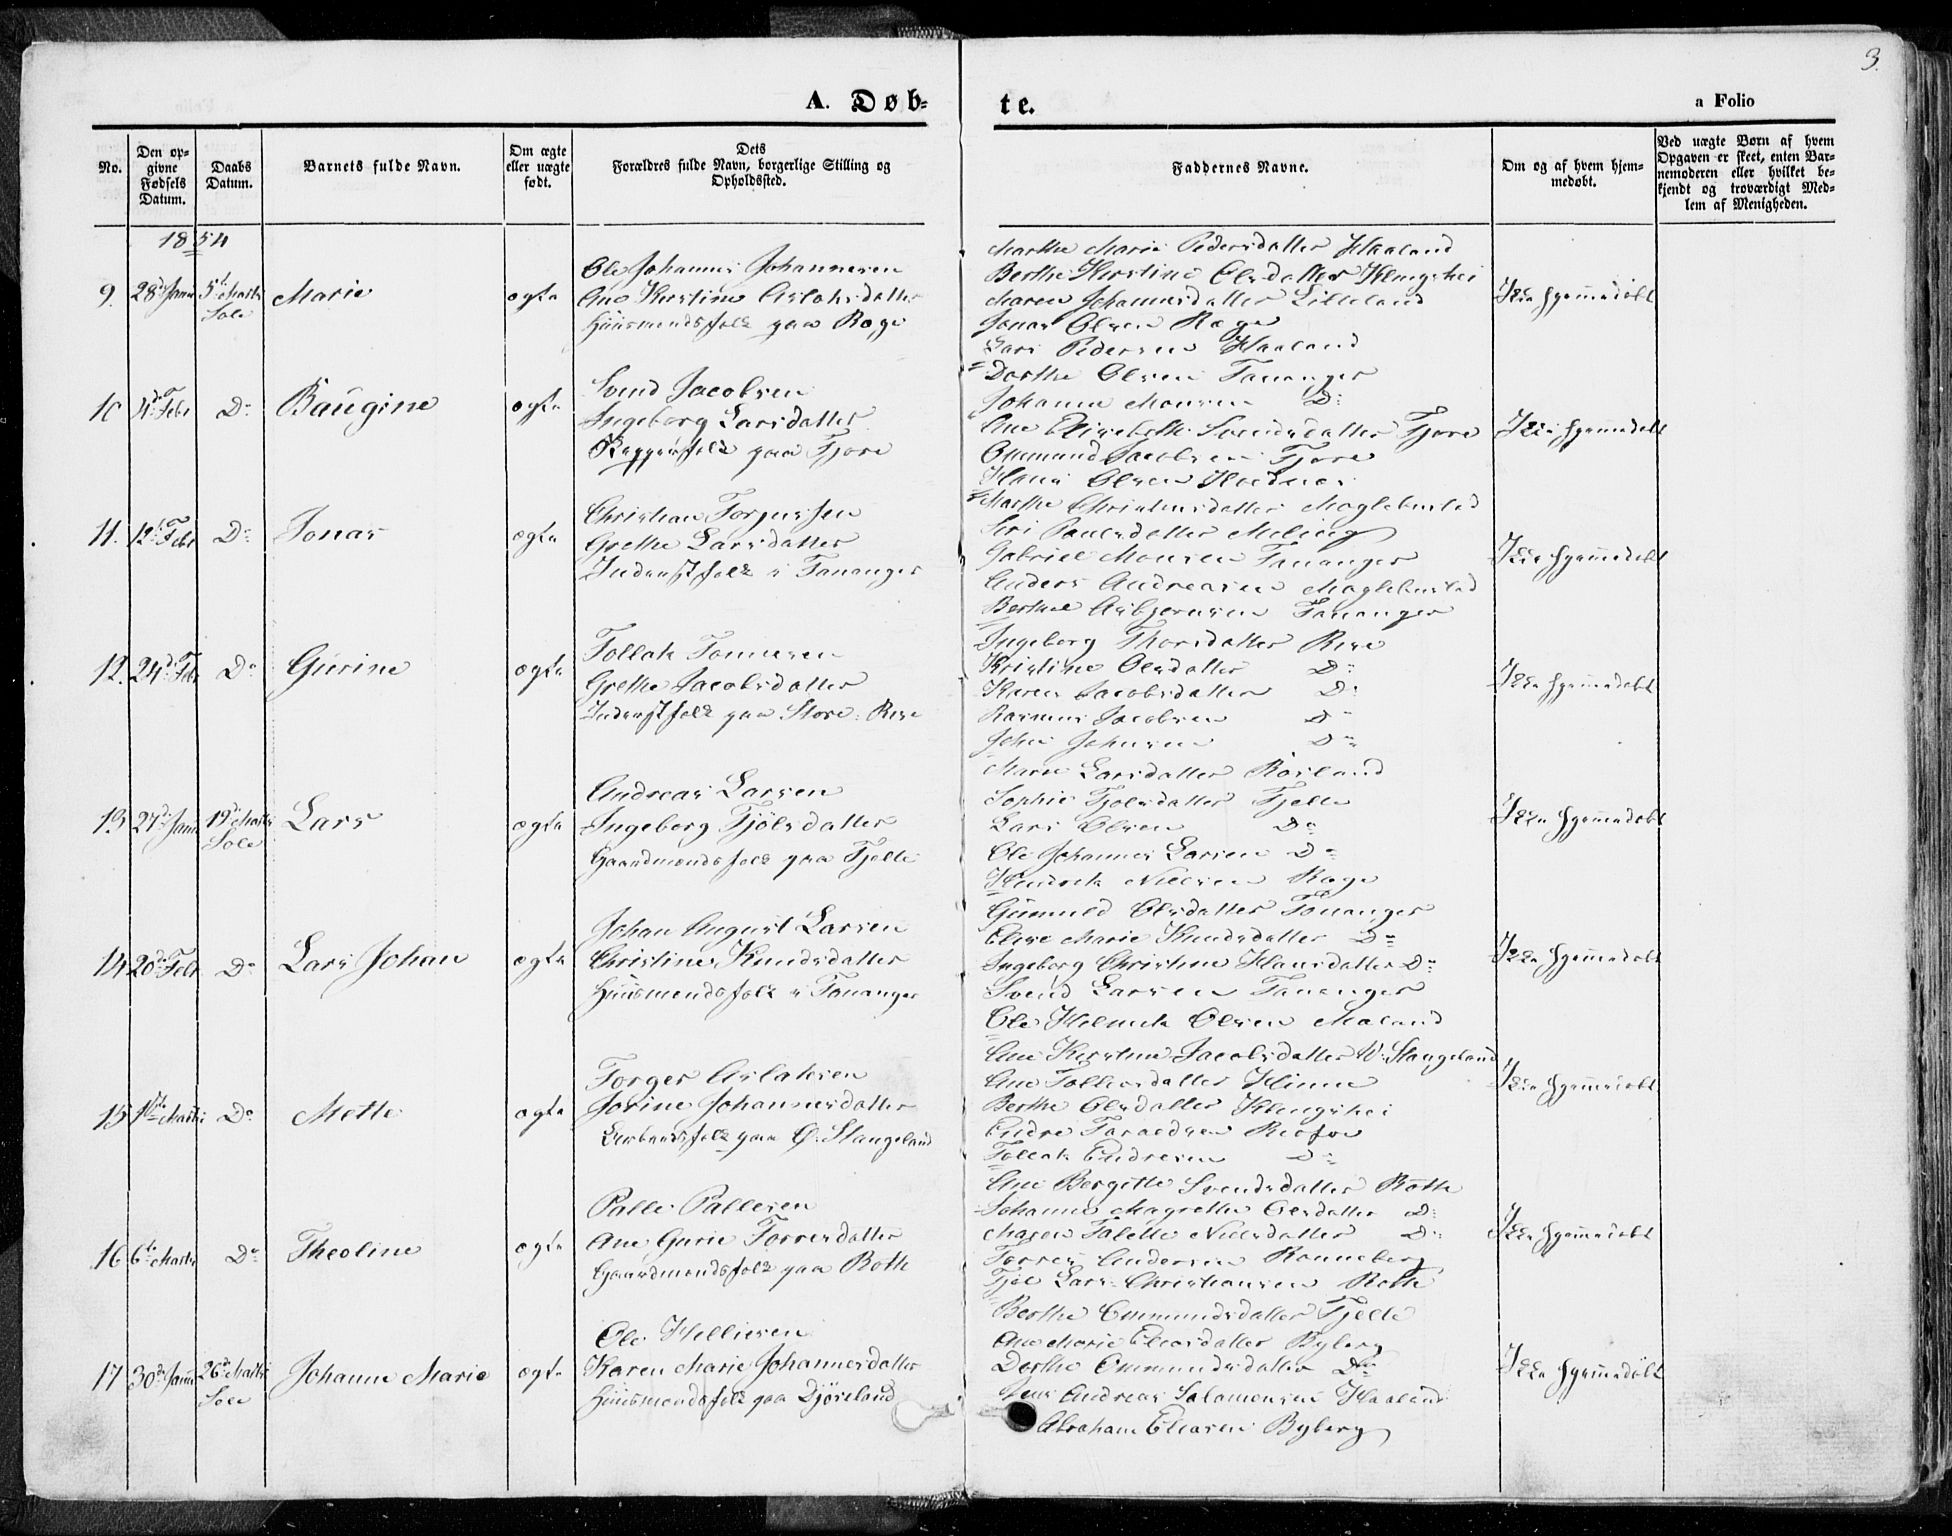 3.
A. Døb-
te.
a Folio
No.
Den op-
givne
Fødsels
Datum.
Daabs
Datum.
Barnets fulde Navn.
Om ægte
eller uægte
født.
Dets
Forældres fulde Navn, borgerlige Stilling og
Opholdssted.
Faddernes Navne.
Om og af hvem hjem-
medøbt.
Ved uægte Børn af hvem
Opgaven er skeet, enten Bar-
nemoderen eller hvilket be-
kjendt og troværdigt Med-
lem af Menigheden.
1854
9. 28d Janu 5te Marts
Sole
Marie
ægte
Ole Johannes Johannesen
Ane Kirstine Aslaksdatter
Huusmandsfolk paa Røge
Marthe Marie Pedersdatter Haaland
Berthe Kirstine Olsdatter Klingshei
Maren Johannesdatter Lilleland
Jonas Olsen Røge
Lars Pedersen Haaland
Ikke hjemmedøbt
10 4d Febr Do
Baugine
ægte
Svend Jacobsen
Ingeborg Larsdatter
folk paa Fjore
Dorthe Olsen Tananger
Johanne Monsen Do
Ane Elisabeth Svendsdatter Fjore
Ommund Jacobsen Fjore
Hans Olsen
Ikke hjemmedøbt
11. 12t Febr Do
Jonas
ægte
Christian Torjussen
Grethe Larsdatter
Inderstfolk i Tananger
Marthe Christensdatter Maglebustad
Siri Paulsdatter Meling
Gabriel Monsen Tananger
Anders Andreasen Maglebustad
Berthel Asbjørnsen Tananger
Ikke hjemmedøbt
12. 24d Febr Do
Gurine
ægte
Tollak Tonnesen
Grethe Jacobsdatter
Inderstfolk paa Store Rise
Ingeborg Thorsdatter Rise
Kristine Olsdatter Do
Karen Jacobsdatter Do
Rasmus Jacobsen Do
John Johnsen Do
Ikke hjemmedøbt
13 27d Janu 19d Marts
Sole
Lars
ægte
Andreas Larsen
Ingeborg Fjølsdatter
Gaardmandsfolk paa Fjelle
Maren Larsdatter Røsland
Sophie Fjolsdatter Fjelle
Lars Olsen Do
Ole Johannes Larsen Do
Hendrik Nielsen Røge
Ikke hjemmedøbt
14 20de Febr Do
Lars Johan
ægte
Johan August Larsen
Christine Knudsdatter
Huusmandsfolk i Tananger
Gunnild Olsdatter Tananger
Elise Marie Knudsdatter Do
Ingeborg Christine Hansdatter Do
Svend Larsen Tananger
Ole Helmik Olsen
Ikke hjemmedøbt
15 1ste Marts Do
Mette
ægte
Torger Aslaksen
Jorine Johannesdatter
folk paa Ø: Stangeland
Ane Kirstine Jacobsdatter W: Stangeland
Ane Tolliersdatter Hinne
Berthe Olsdatter Klingshei
Endre Taraldsen
Tollak Endresen Do
Ikke hjemmedøbt
16 6te Marts Do
Theoline
ægte
Palle Pallesen
Ane Gurie Torresdatter
Gaardmandsfolk paa Roth
Ane Bergitte Svendsdatter Roth
Johanne Magrethe Olsdatter Do
Maren Talette Nielsdatter Do
Torres Andersen Ronneberg
Fjøl Lars Christiansen Roth
Ikke hjemmedøbt
17 30de Janu 26d Marts
Sole
Johanne Marie
ægte
Ole Helliesen
Karen Marie Johannesdatter
Huusmandsfolk paa Djøseland
Berthe Ommundsdatter Fjelle
Ane Marie Eliasdatter Byberg
Dorthe Ommundsdatter Do
Jens Andreas Salamonsen Haaland
Abraham Eliasen Byberg
Ikke hjemmedøbt